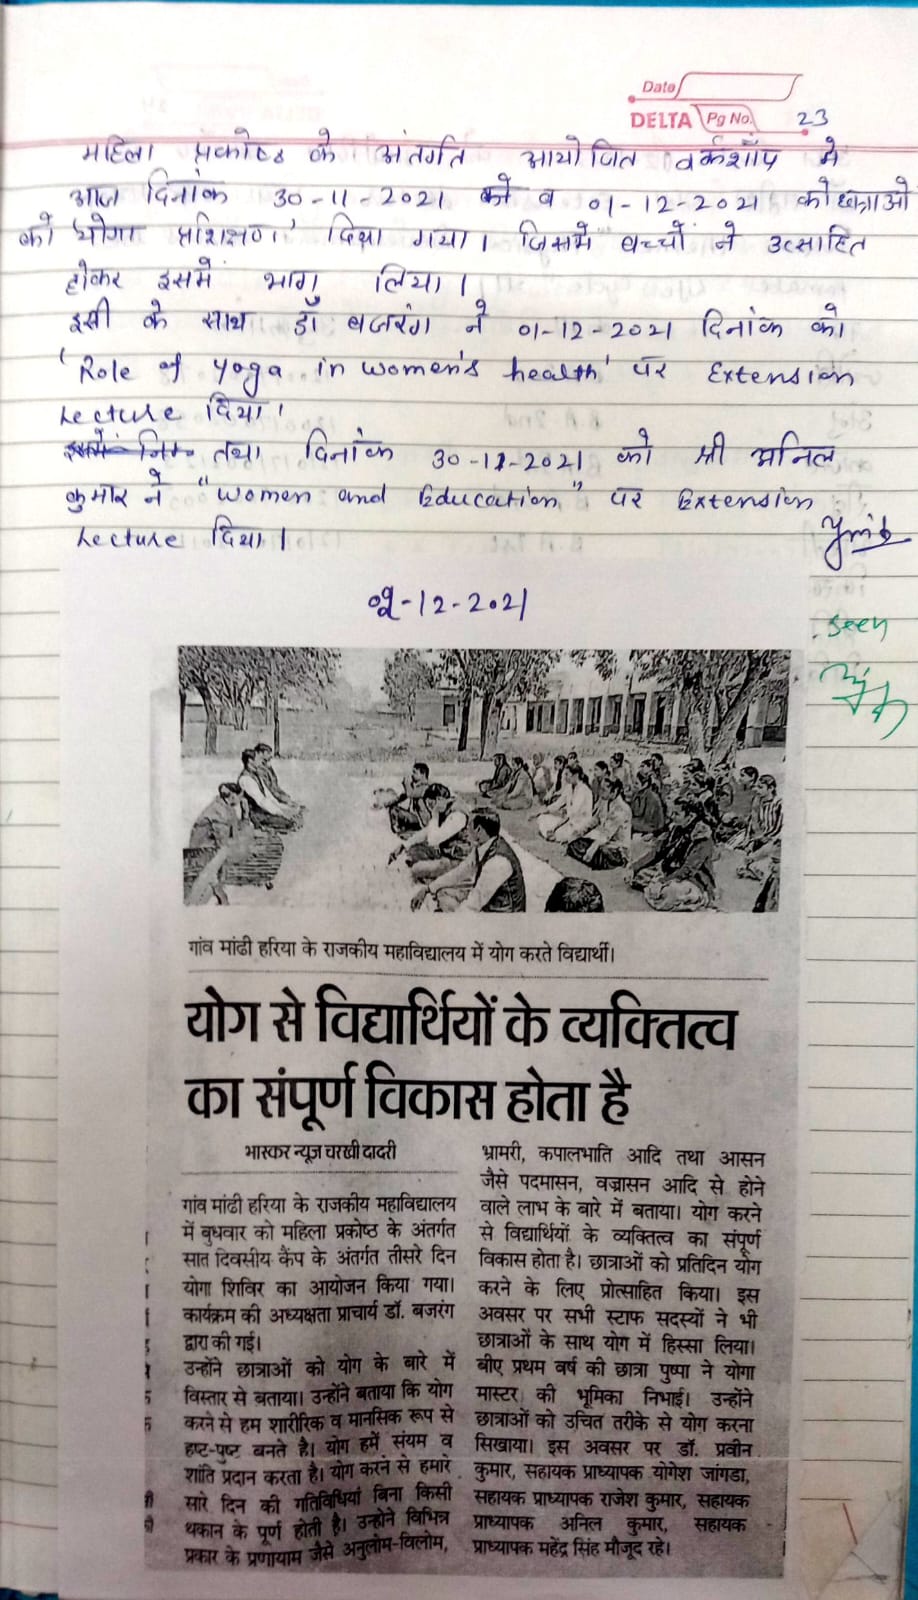 Date
DELTA Pg No. 23
महिला प्रकोष्ठ के अंतर्गत आयोजित वर्कशॉप मे
आज दिनांक 30-11-2021 को व 01-12-2021 को छात्राओ
को 'योगा प्रशिक्षण' दिया गया। जिसमें बच्चों ने उत्साहित
होकर इसमें भाग लिया।
इसी के साथ डॉ बजरंग ने 01-12-2021 दिनांक को
'Role of yoga in women's health' पर Extension
Lecture दिया।
तथा दिनांक 30-11-2021 को श्री अनिल
कुमार ने "Women and Education" पर Extension
Lecture दिया।
-12-2021
seen
गांव मांढी हरिया के राजकीय महाविद्यालय में योग करते विद्यार्थी।
योग से विद्यार्थियों के व्यक्तित्व
का संपूर्ण विकास होता है
भास्कर न्यूज चरखी दादरी
गांव मांढी हरिया के राजकीय महाविद्यालय
में बुधवार को महिला प्रकोष्ठ के अंतर्गत
सात दिवसीय कैंप के अंतर्गत तीसरे दिन
योगा शिविर का आयोजन किया गया।
कार्यक्रम की अध्यक्षता प्राचार्य डॉ. बजरंग
द्वारा की गई।
उन्होंने छात्राओं को योग के बारे में
विस्तार से बताया। उन्होंने बताया कि योग
करने से हम शारीरिक व मानसिक रूप से
हष्ट-पुष्ट बनते है। योग हमें संयम व
शांति प्रदान करता है। योग करने से हमारे
सारे दिन की गतिविधियां बिना किसी
थकान के पूर्ण होती है। उन्होने विभिन्न
प्रकार के प्रणायाम जैसे अनुलोम-विलोम,
भ्रामरी, कपालभाति आदि तथा आसन
जैसे पदमासन, वज्रासन आदि से होने
वाले लाभ के बारे में बताया। योग करने
से विद्यार्थियों के व्यक्तित्व का संपूर्ण
विकास होता है। छात्राओं को प्रतिदिन योग
करने के लिए प्रोत्साहित किया। इस
अवसर पर सभी स्टाफ सदस्यों ने भी
छात्राओं के साथ योग में हिस्सा लिया।
बीए प्रथम वर्ष की छात्रा पुष्पा ने योगा
मास्टर की भूमिका निभाई। उन्होंने
छात्राओं को उचित तरीके से योग करना
सिखाया। इस अवसर पर डॉ. प्रवीन
कुमार, सहायक प्राध्यापक योगेश जांगडा,
सहायक प्राध्यापक राजेश कुमार, सहायक
प्राध्यापक अनिल कुमार, सहायक
प्राध्यापक महेंद्र सिंह मौजूद रहे।